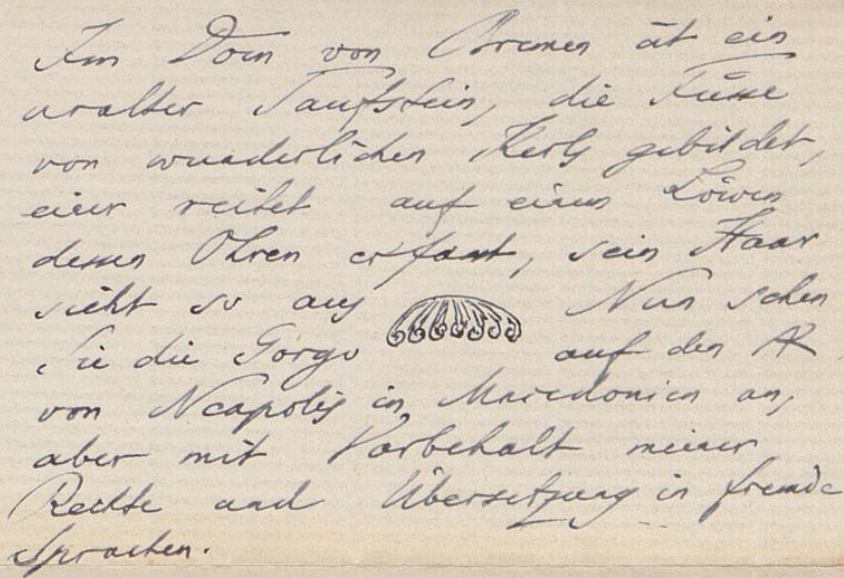 Im Dom von Bremen ist ein
uralter Taufstein, die Füsse
von wunderlichen Kerls gebildet,
einer reitet auf einem Löwen
dessen Ohren er fasst, sein Haar
sieht so aus Nun sehen
Sie die Gorgo auf den AR
von Neapolis in Macedonien an,
aber mit Vorbehalt meiner
Rechte und Übersetzung in fremde
Sprachen.